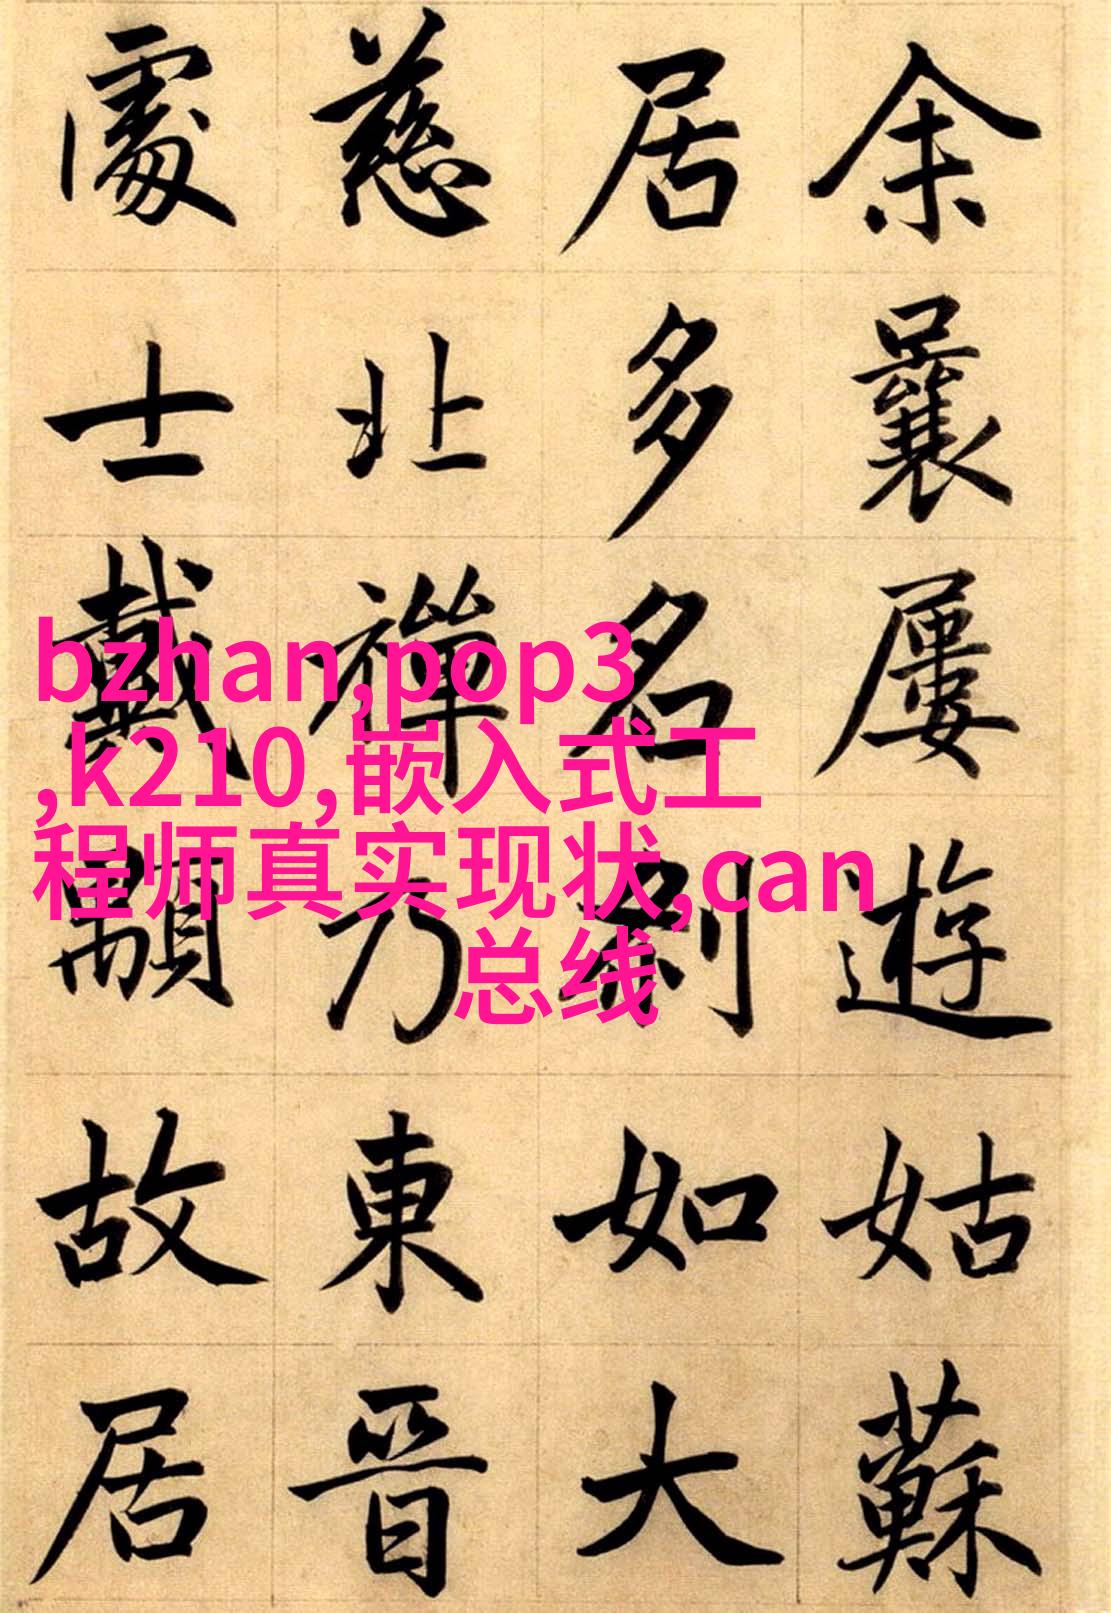 余曩屢遊姑蘇
居多名刹如大
慈北禪乃東晉
處士戴顒故居
bzhan,pop3
,k210,嵌入式工
程师真实现状,can
总线